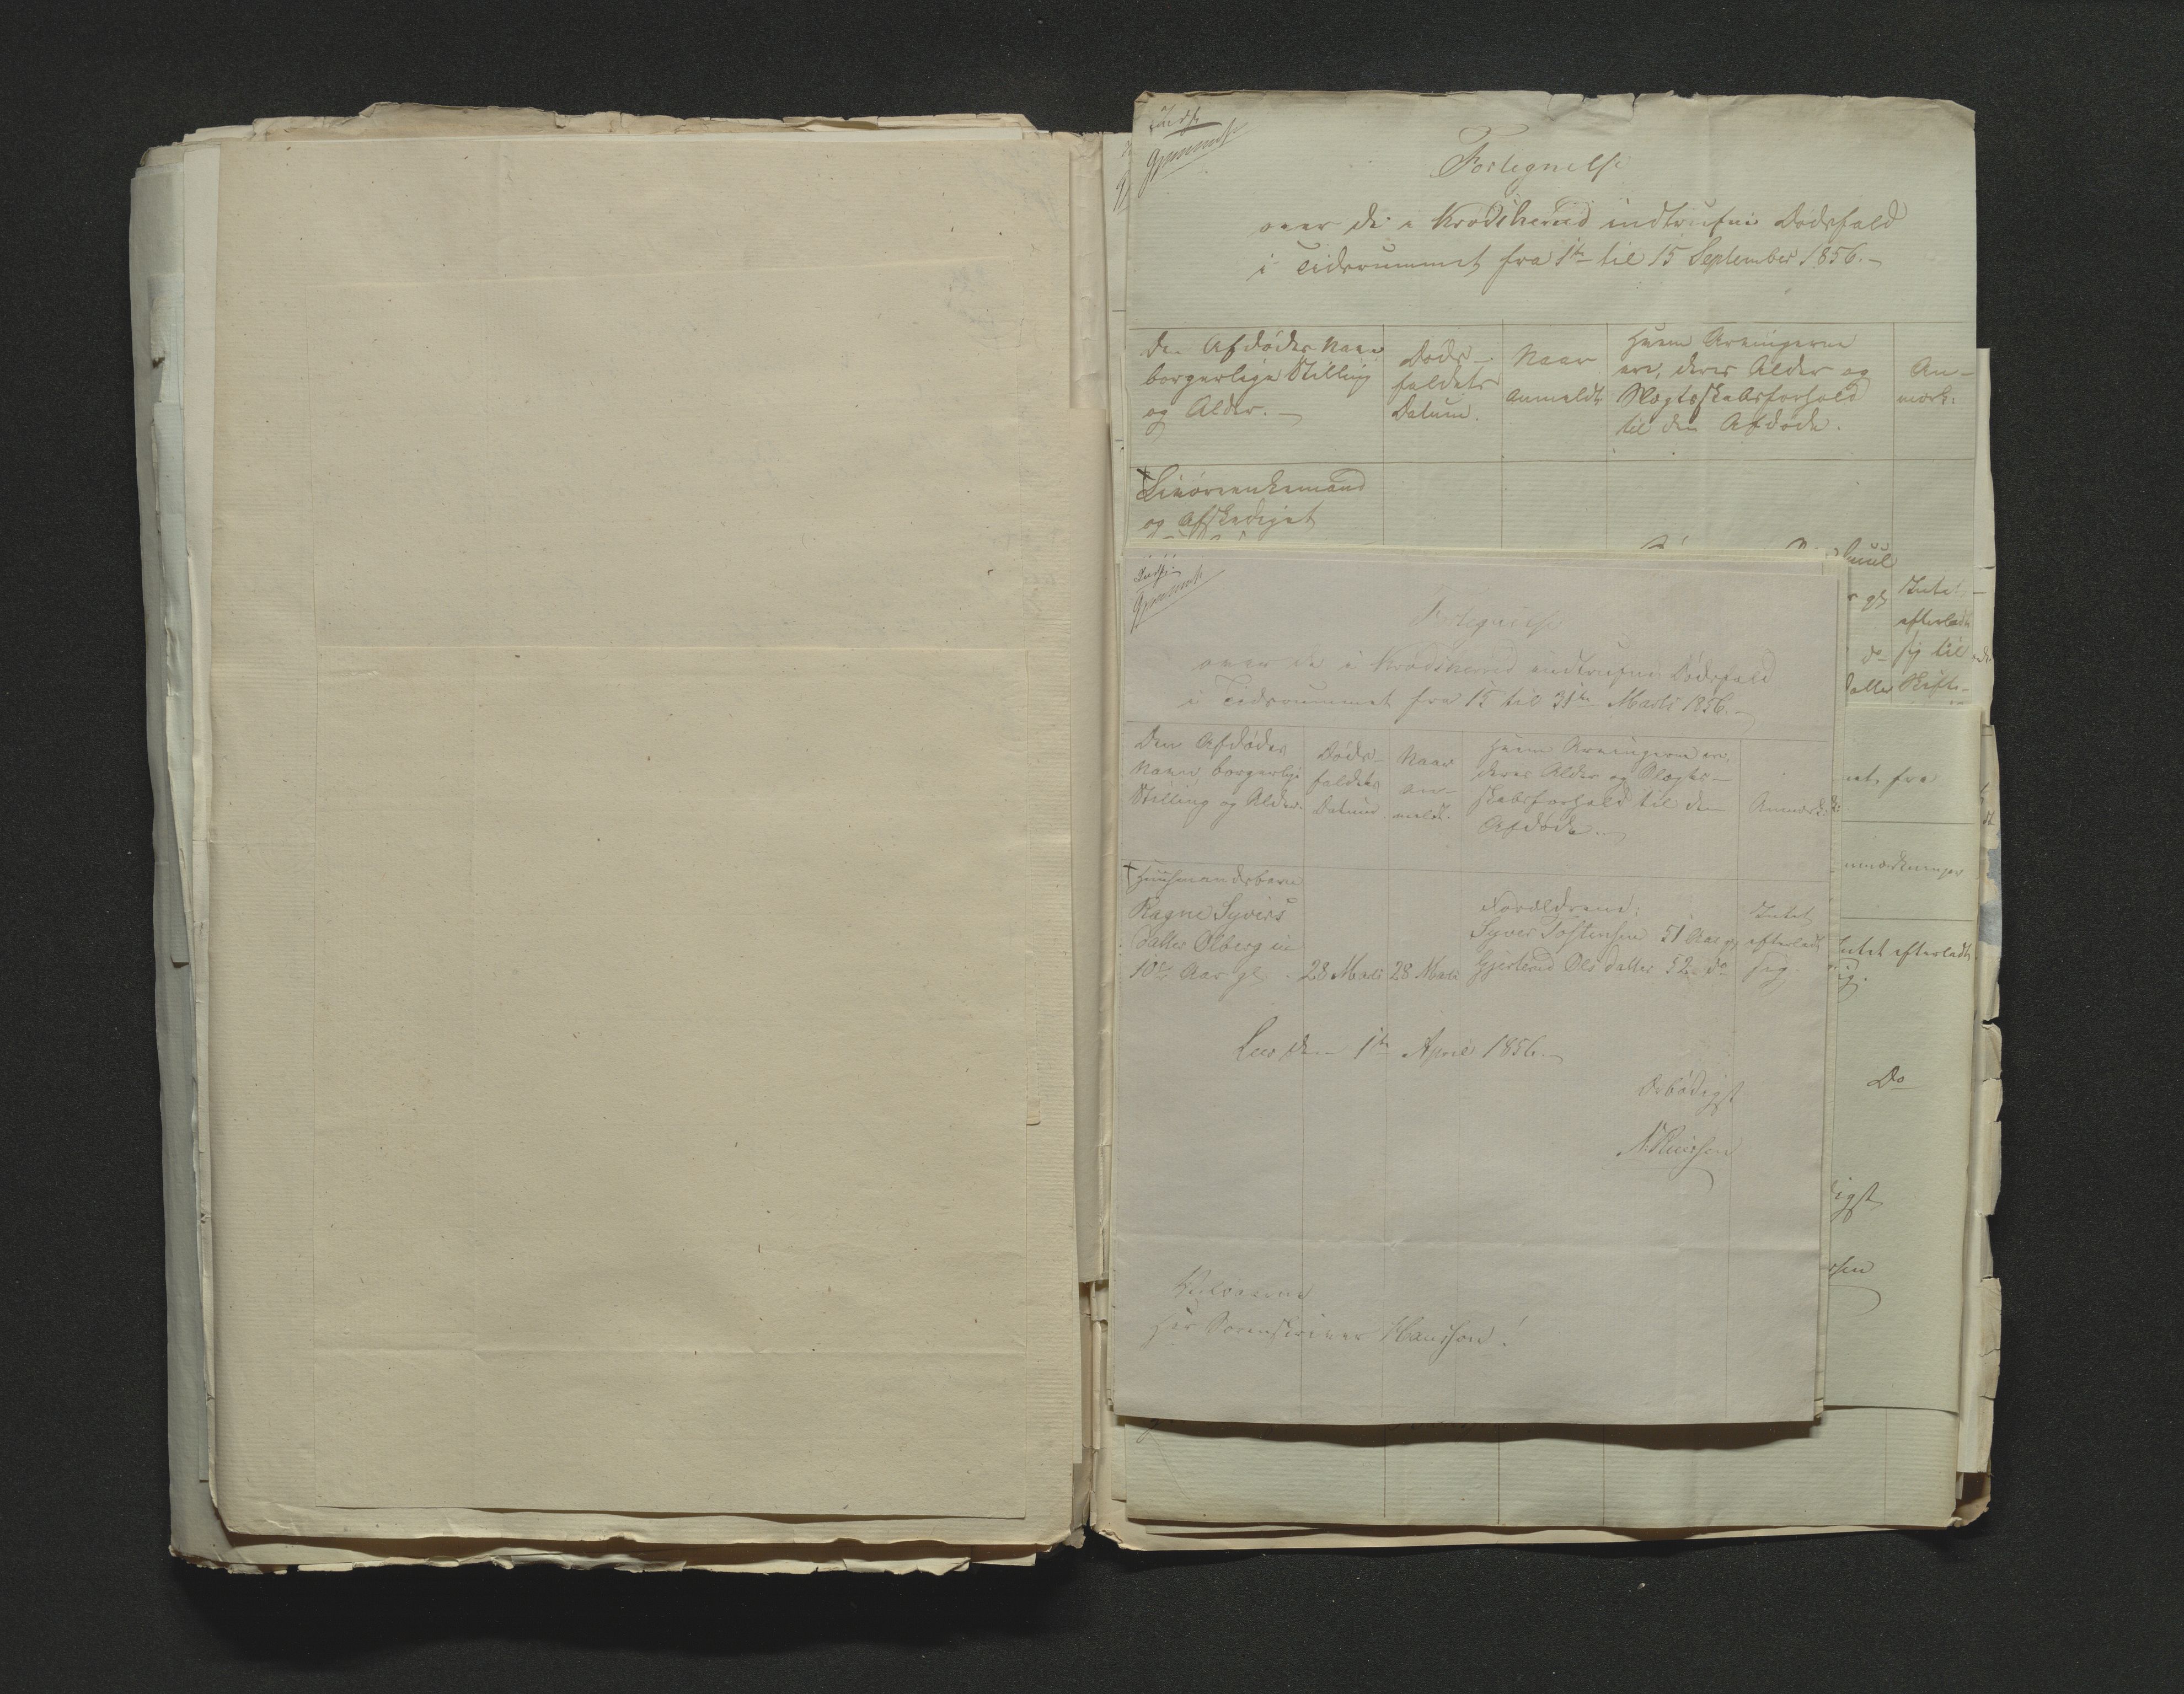 Indf.
Gjennemg.
Fortegnelse
over de i Krødsherred indtrufne Dødsfald
i Tidsrummet fra 1ste til 15 September 1856.
Den Afdødes Navn
borgerlige Stilling
og Alder.
Døds-
faldets
Datum.
Naar
anmeldt
Hvem Arvingerne
ere, deres Alder og
Slægtskabsforhold
til den Afdøde.
An-
mærk:
og Afskediget
Intet
efterladt
sig til
Skifte
Indf.
Fortegnelse
over de i Krødsherred indtrufne Dødsfald
i Tidsrummet fra 15 til 31te Marts 1856.
Den Afdødes
Navn, borgerlige
Stilling og Alder.
Døds-
faldets
Datum.
Naar
an-
meldt.
Hvem Arvingerne ere,
deres Alder og Slægt-
skabsforhold til den
Afdøde.
Anmærk:
Huusmandsbarn
Ragne Syvers
datter Olberg
10 Aar gl.
28 Marts
28 Marts
Forældrene:
Syver Tostensen 51 Aar gl
Gjertrud Ols datter 52 do
Intet
efterladt
sig
fra
Anmærkninger
Intet efterladt
sig.
Do
Leer den 1ste April 1856.
Ærbødigst
Velbaarne
Herr Sorenskriver Hansson!